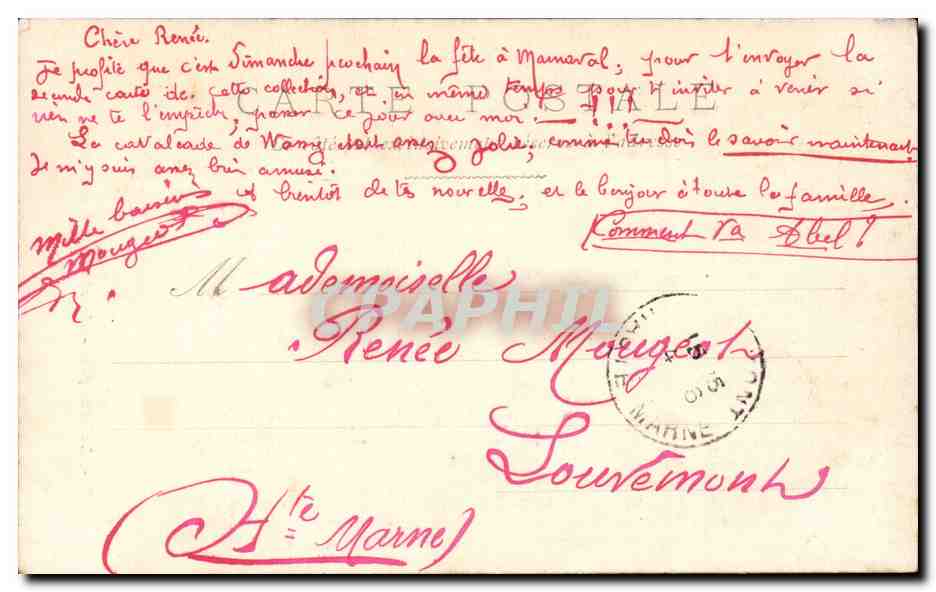 Chère Renée.
Je profite que c'est Dimanche prochain la fête à Marnaval, pour t'envoyer la
seconde carte de cette collection, et en même temps pour t'inviter à venir si
rien ne t'empêche, passer ce jour avec moi. !!!
CARTE POSTALE
La cavalcade de Wassy était assez jolie, comme tu dois le savoir maintenant
Je m'y suis assez bien amusé.
A bientôt de tes nouvelles, et le bonjour à toute la famille.
Mille baisers
Mougeot
Comment va Abel?
Mademoiselle
CPAPHIL
Renée Mougeot
Louvemont
(Hte Marne)
MARNE